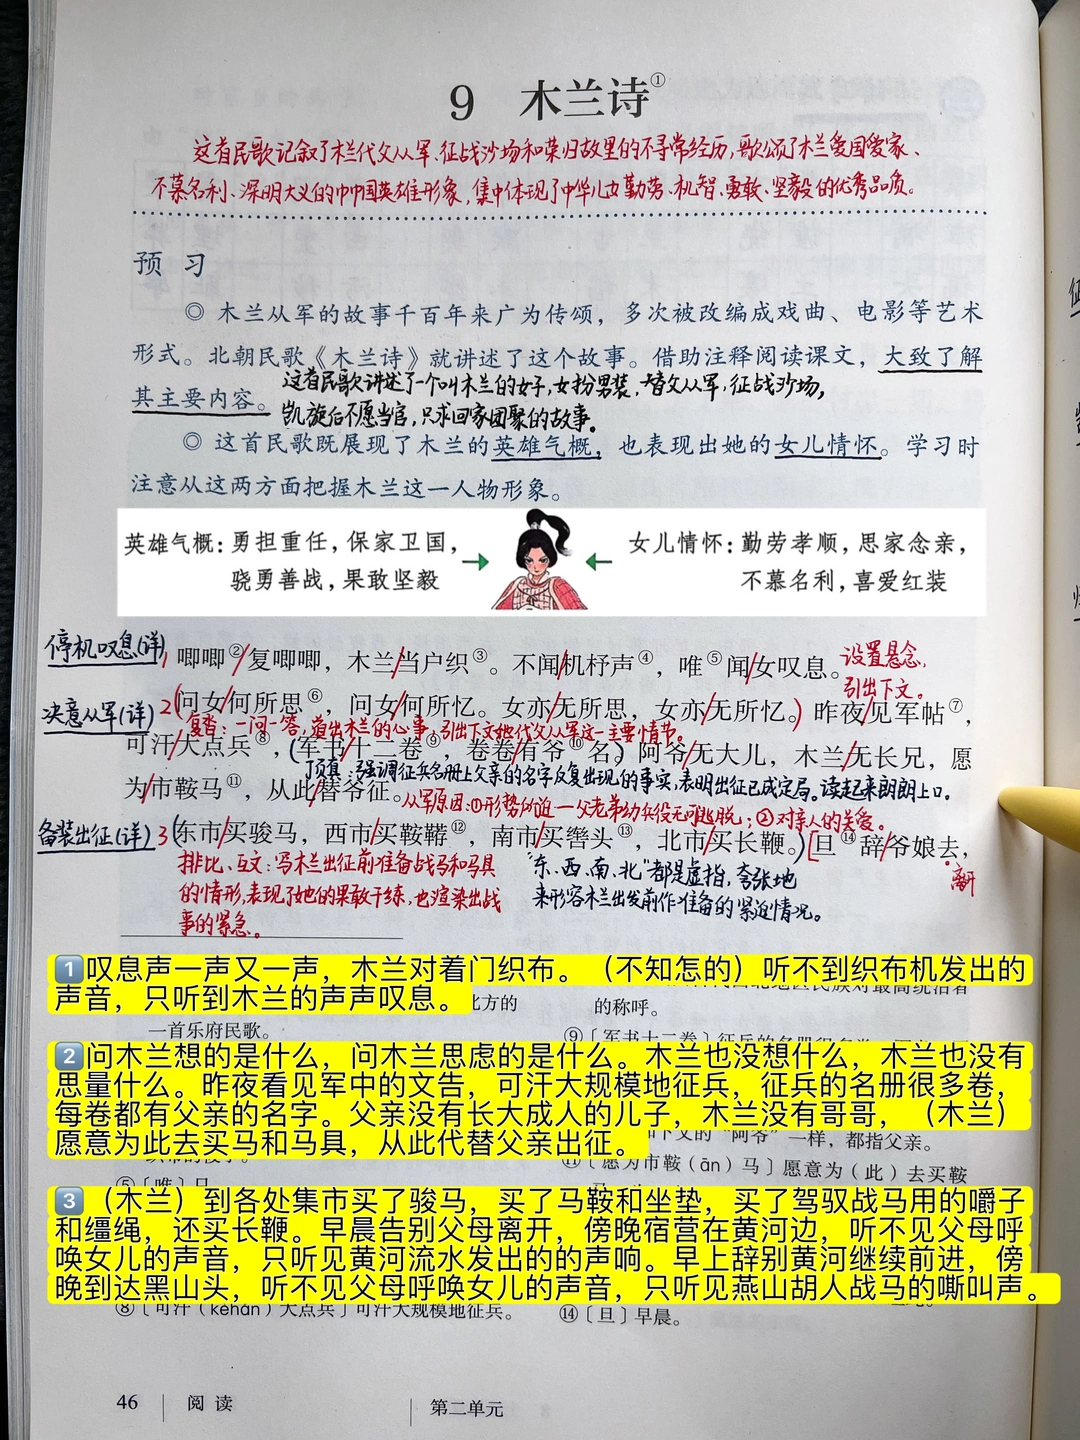 9 木兰诗①
这首民歌记叙了木兰代父从军、征战沙场和荣归故里的不寻常经历,歌颂了木兰爱国爱家、
不慕名利、深明大义的巾帼英雄形象,集中体现了中华儿女勤劳、机智、勇敢、坚毅的优秀品质。
预 习
◎ 木兰从军的故事千百年来广为传颂,多次被改编成戏曲、电影等艺术
形式。北朝民歌《木兰诗》就讲述了这个故事。借助注释阅读课文,大致了解
这首民歌讲述了一个叫木兰的女子,女扮男装,替父从军,征战沙场,
其主要内容。
凯旋后不愿当官,只求回家团聚的故事。
◎ 这首民歌既展现了木兰的英雄气概,也表现出她的女儿情怀。学习时
注意从这两方面把握木兰这一人物形象。
英雄气概:勇担重任,保家卫国,
骁勇善战,果敢坚毅
女儿情怀:勤劳孝顺,思家念亲,
不慕名利,喜爱红装
停机叹息(详)
1 唧唧②/复唧唧,木兰/当户织③。不闻/机杼声④,唯⑤闻/女叹息。
设置悬念,
引出下文。
决意从军(详)
2(问女/何所思⑥,问女/何所忆。女亦/无所思,女亦/无所忆。)昨夜/见军帖⑦,
复沓:一问一答,道出木兰的心事,引出下文她代父从军这一主要情节。
可汗/大点兵⑧,(军书/十二卷⑨,卷卷/有爷⑩名)阿爷/无大儿,木兰/无长兄,愿
顶真:强调征兵名册上父亲的名字反复出现的事实,表明出征已成定局。读起来朗朗上口。
为/市鞍马⑪,从此/替爷征。
从军原因:①形势所迫—父老弟幼兵役无可逃脱;②对亲人的关爱。
备装出征(详)
3(东市/买骏马,西市/买鞍鞯⑫,南市/买辔头⑬,北市/买长鞭。)[旦⑭辞/爷娘去,
离开
排比、互文:写木兰出征前准备战马和马具
的情形,表现了她的果敢干练,也渲染出战
事的紧急。
“东、西、南、北”都是虚指,夸张地
来形容木兰出发前作准备的紧迫情况。
1叹息声一声又一声,木兰对着门织布。(不知怎的)听不到织布机发出的
声音,只听到木兰的声声叹息。
北方的
的称呼。
一首乐府民歌。
2问木兰想的是什么,问木兰思虑的是什么。木兰也没想什么,木兰也没有
思量什么。昨夜看见军中的文告,可汗大规模地征兵,征兵的名册很多卷,
每卷都有父亲的名字。父亲没有长大成人的儿子,木兰没有哥哥,(木兰)
愿意为此去买马和马具,从此代替父亲出征。
下文的“阿爷”一样,都指父亲。
⑪〔愿为市鞍(ān)马〕愿意为(此)去买鞍
⑤〔唯〕只。
3(木兰)到各处集市买了骏马,买了马鞍和坐垫,买了驾驭战马用的嚼子
和缰绳,还买长鞭。早晨告别父母离开,傍晚宿营在黄河边,听不见父母呼
唤女儿的声音,只听见黄河流水发出的的声响。早上辞别黄河继续前进,傍
晚到达黑山头,听不见父母呼唤女儿的声音,只听见燕山胡人战马的嘶叫声。
⑧〔可汗(kèhán)大点兵〕可汗大规模地征兵。
⑭〔旦〕早晨。
46 阅读
第二单元